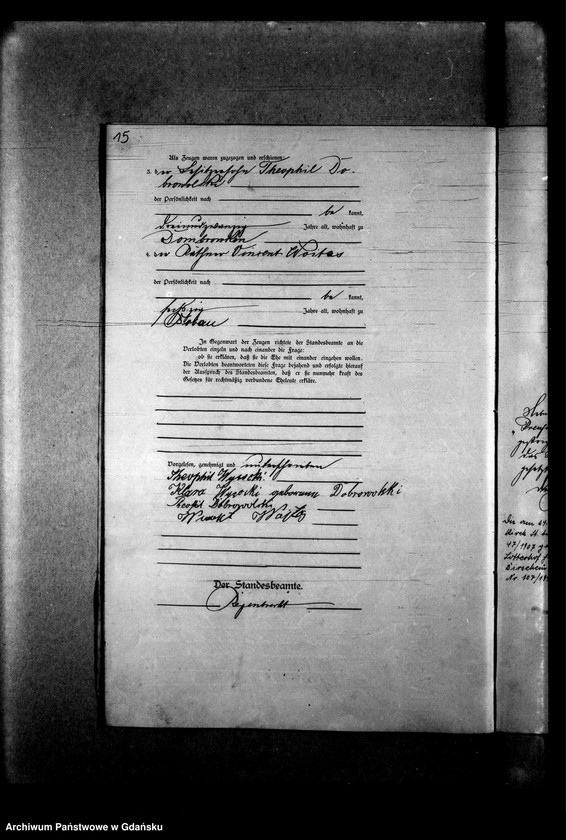 15
Als Zeugen waren zugezogen und erschienen:
3. der Besitzersohn Theophil Do-
browolski
der Persönlichkeit nach
be kannt,
dreiundzwanzig Jahre alt, wohnhaft zu
Dombrowken
4. der Käthner Vincent Woitas
der Persönlichkeit nach
be kannt,
sechzig Jahre alt, wohnhaft zu
In Gegenwart der Zeugen richtete der Standesbeamte an die
Verlobten einzeln und nach einander die Frage:
ob sie erklären, daß sie die Ehe mit einander eingehen wollen.
Die Verlobten beantworteten diese Frage bejahend und erfolgte hierauf
der Ausspruch des Standesbeamten, daß er sie nunmehr kraft des
Gesetzes für rechtmäßig verbundene Eheleute erkläre.
Vorgelesen, genehmigt und unterschrieben
Theophil Wysocki
Klara Wysocki geborene Dobrowolski
Teofil Dobrowolski
Der Standesbeamte.
47/1907
Archiwum Państwowe w Gdańsku